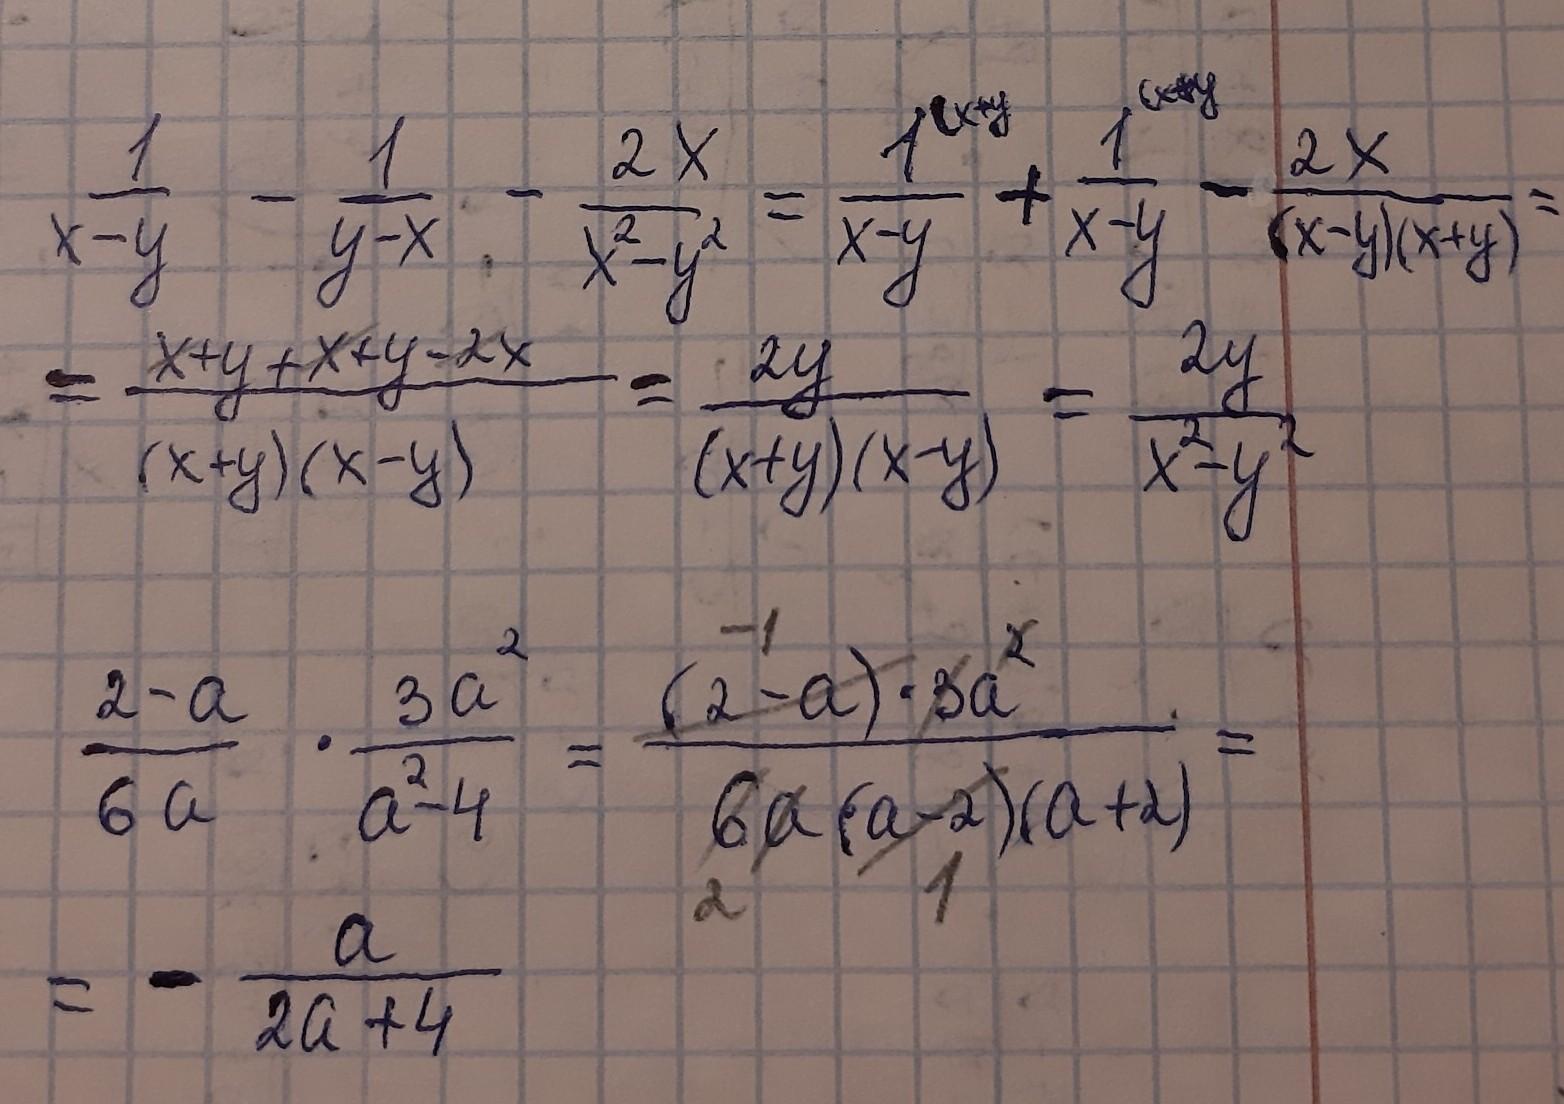 1/(x-y) - 1/(y-x) - 2x/(x²-y²) = 1^(x+y/(x-y) + 1^(x+y/(x-y) - 2x/((x-y)(x+y)) =
= (x+y+x+y-2x)/((x+y)(x-y)) = 2y/((x+y)(x-y)) = 2y/(x²-y²)
-1
(2-a)/(6a) · 3a²/(a²-4) = ((2-a)·3a²)/(6a(a-2)(a+2)) =
2 1
= - a/(2a+4)